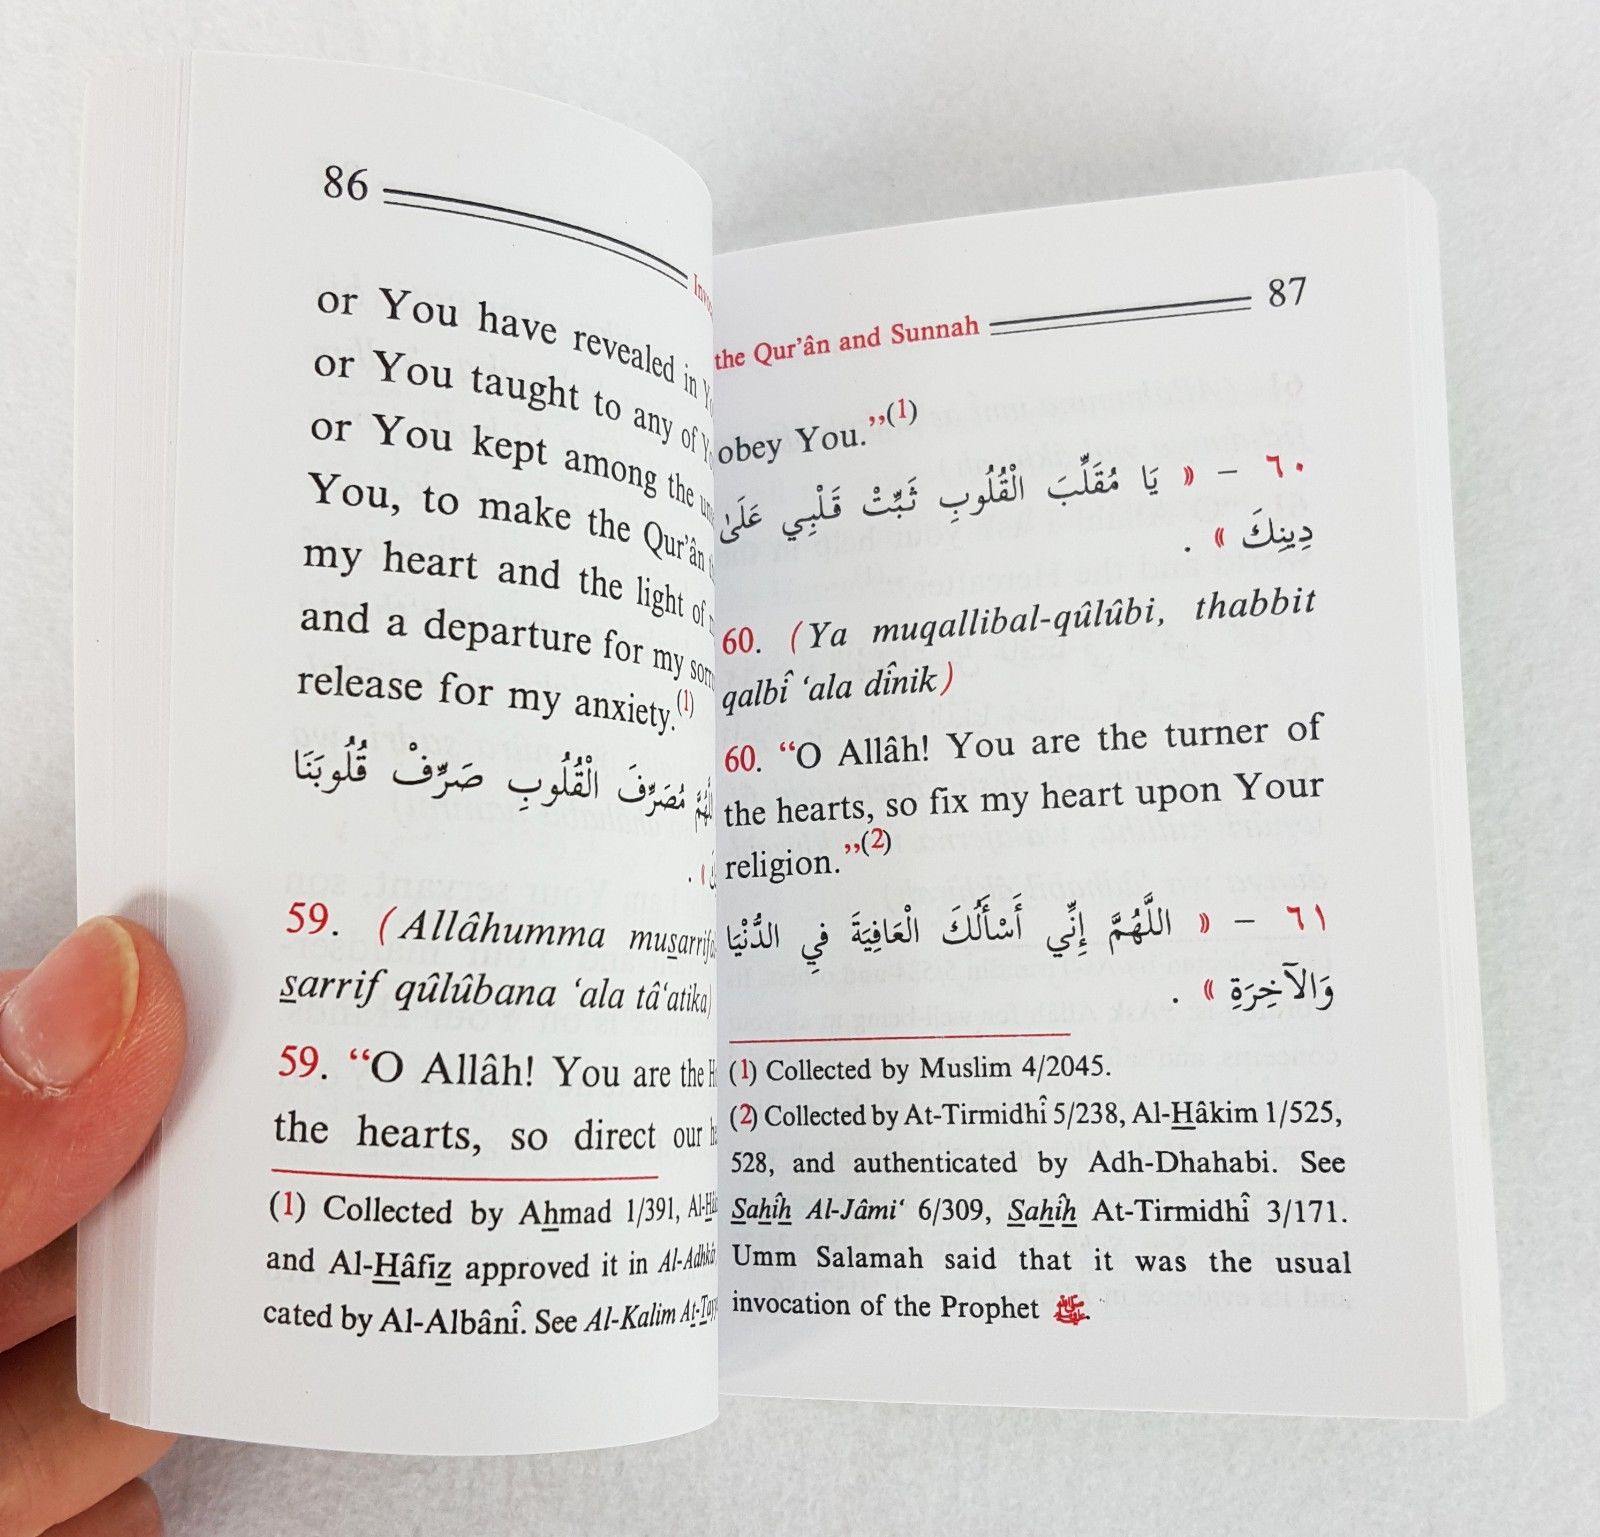 86
or You have revealed in
or You taught to any of
or You kept among the
You, to make the Qur'ân
my heart and the light of
and a departure for my
release for my anxiety.(1)
مُصَرِّفَ الْقُلُوبِ صَرِّفْ قُلُوبَنَا
59. (Allâhumma
sarrif qûlûbana ‘ala tâ‘atika)
59. “O Allâh! You are the
the hearts, so direct our
(1) Collected by Ahmad 1/391,
and Al-Hâfiz approved it in
cated by Al-Albânî. See Al-Kalim
the Qur'ân and Sunnah 87
obey You.”(1)
٦٠ – « يَا مُقَلِّبَ الْقُلُوبِ ثَبِّتْ قَلْبِي عَلَىٰ
دِينِكَ » .
60. (Ya muqallibal-qûlûbi, thabbit
qalbî ‘ala dînik)
60. “O Allâh! You are the turner of
the hearts, so fix my heart upon Your
religion.”(2)
٦١ – « اللَّهُمَّ إِنِّي أَسْأَلُكَ الْعَافِيَةَ فِي الدُّنْيَا
وَالآخِرَةِ » .
(1) Collected by Muslim 4/2045.
(2) Collected by At-Tirmidhî 5/238, Al-Hâkim 1/525,
528, and authenticated by Adh-Dhahabi. See
Sahîh Al-Jâmi‘ 6/309, Sahîh At-Tirmidhî 3/171.
Umm Salamah said that it was the usual
invocation of the Prophet ﷺ.